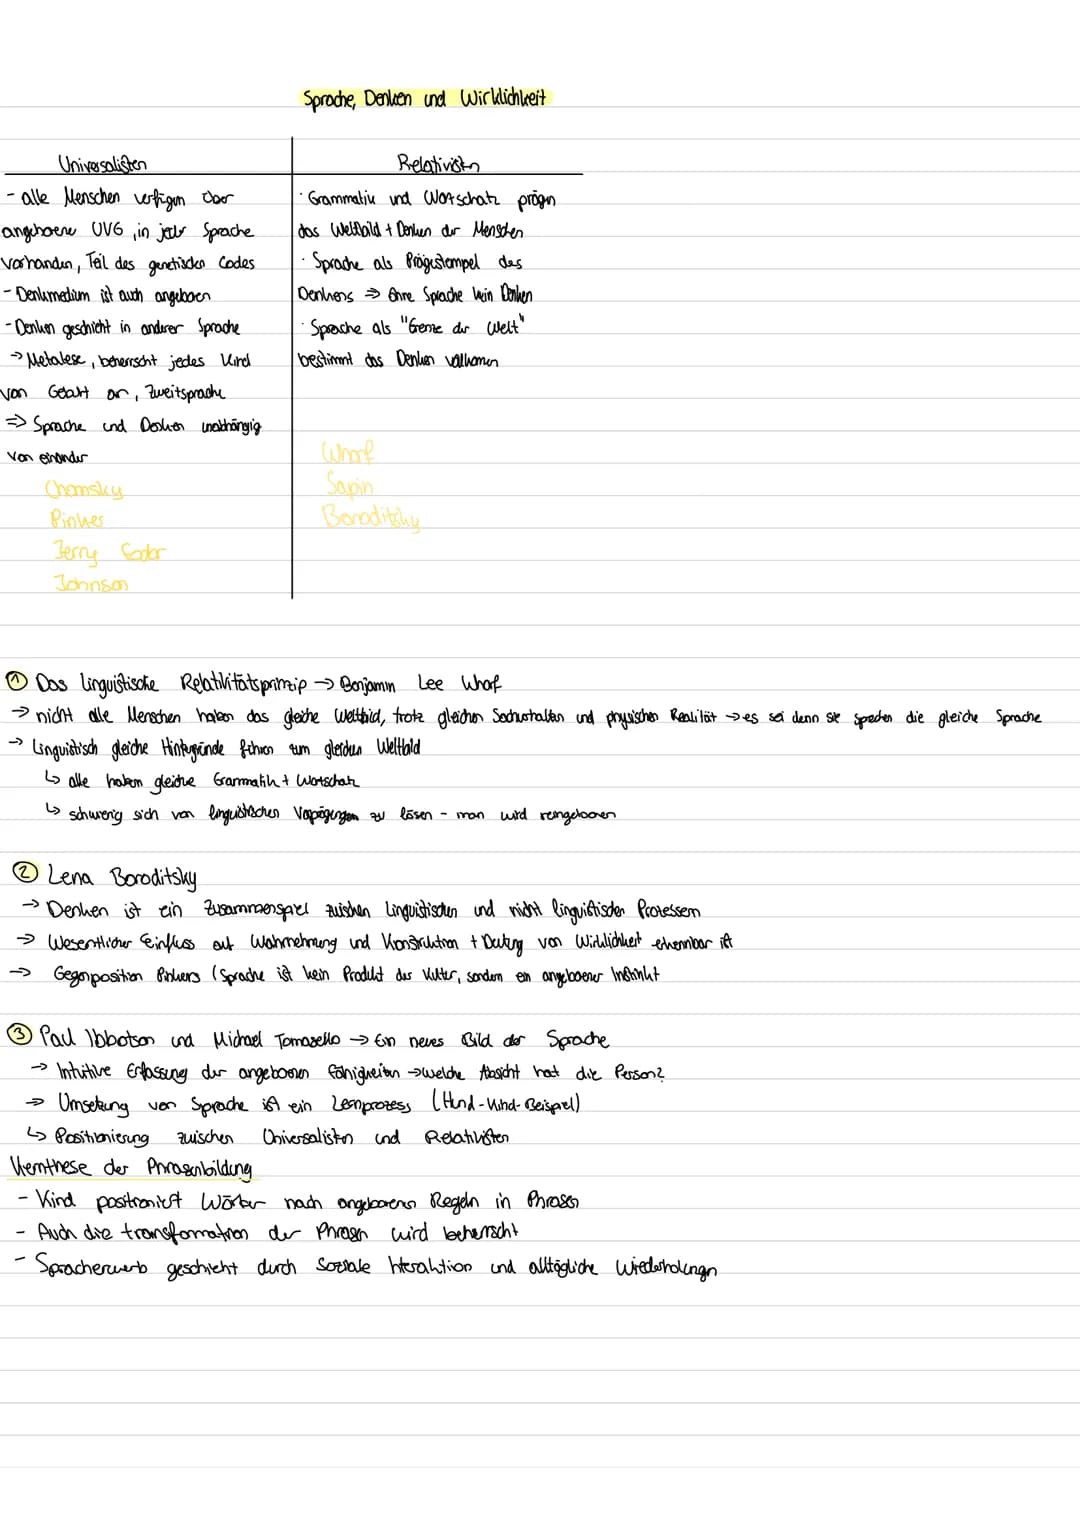 Sprache, Denken und Wirklichkeit
Universalisten
- alle Menschen verfügen über
angeborene UVG, in jeder Sprache
vorhanden, Teil des genetischen Codes
- Denkmedium ist auch angeboren
- Denken geschieht in anderer Sprache
→ Metalese, beherrscht jedes Kind
von Geburt an, Zweitsprache
⇒ Sprache und Denken unabhängig
von einander
Chomsky
Pinker
Jerry Fodor
Johnson
Relativisten
· Grammatik und Wortschatz prägen
das Weltbild + Denken der Menschen
· Sprache als Prägestempel des
Denkens ⇒ Ohne Sprache kein Denken
· Sprache als "Grenze der Welt"
bestimmt das Denken vollkommen
Whorf
Sapin
Boroditsky
① Das linguistische Relativitätsprinzip → Benjamin Lee Whorf
→ nicht alle Menschen haben das gleiche Weltbild, trotz gleichen Sachverhalten und physischen Realität → es sei denn sie sprechen die gleiche Sprache
→ Linguistisch gleiche Hintergründe führen zum gleichen Weltbild
↳ alle haben gleiche Grammatik + Wortschatz
↳ schwierig sich von linguistischen Vorprägungen zu lösen - man wird reingeboren
② Lena Boroditsky
→ Denken ist ein Zusammenspiel zwischen linguistischen und nicht linguistischen Prozessen
→ Wesentlicher Einfluss auf Wahrnehmung und Konstruktion + Deutung von Wirklichkeit erkennbar ist
→ Gegenposition Pinkers (Sprache ist kein Produkt der Kultur, sondern ein angeborener Instinkt
③ Paul Ibbotson und Michael Tomasello → Ein neues Bild der Sprache
→ Intuitive Erfassung der angeborenen Fähigkeiten → welche Absicht hat die Person?
→ Umsetzung von Sprache ist ein Lernprozess (Hund-Kind-Beispiel)
↳ Positionierung zwischen Universalisten und Relativisten
Kernthese der Phrasenbildung
- Kind positioniert Wörter nach angeborenen Regeln in Phrasen
- Auch die transformation der Phrasen wird beherrscht
- Spracherwerb geschieht durch soziale Interaktion und alltägliche Wiederholungen